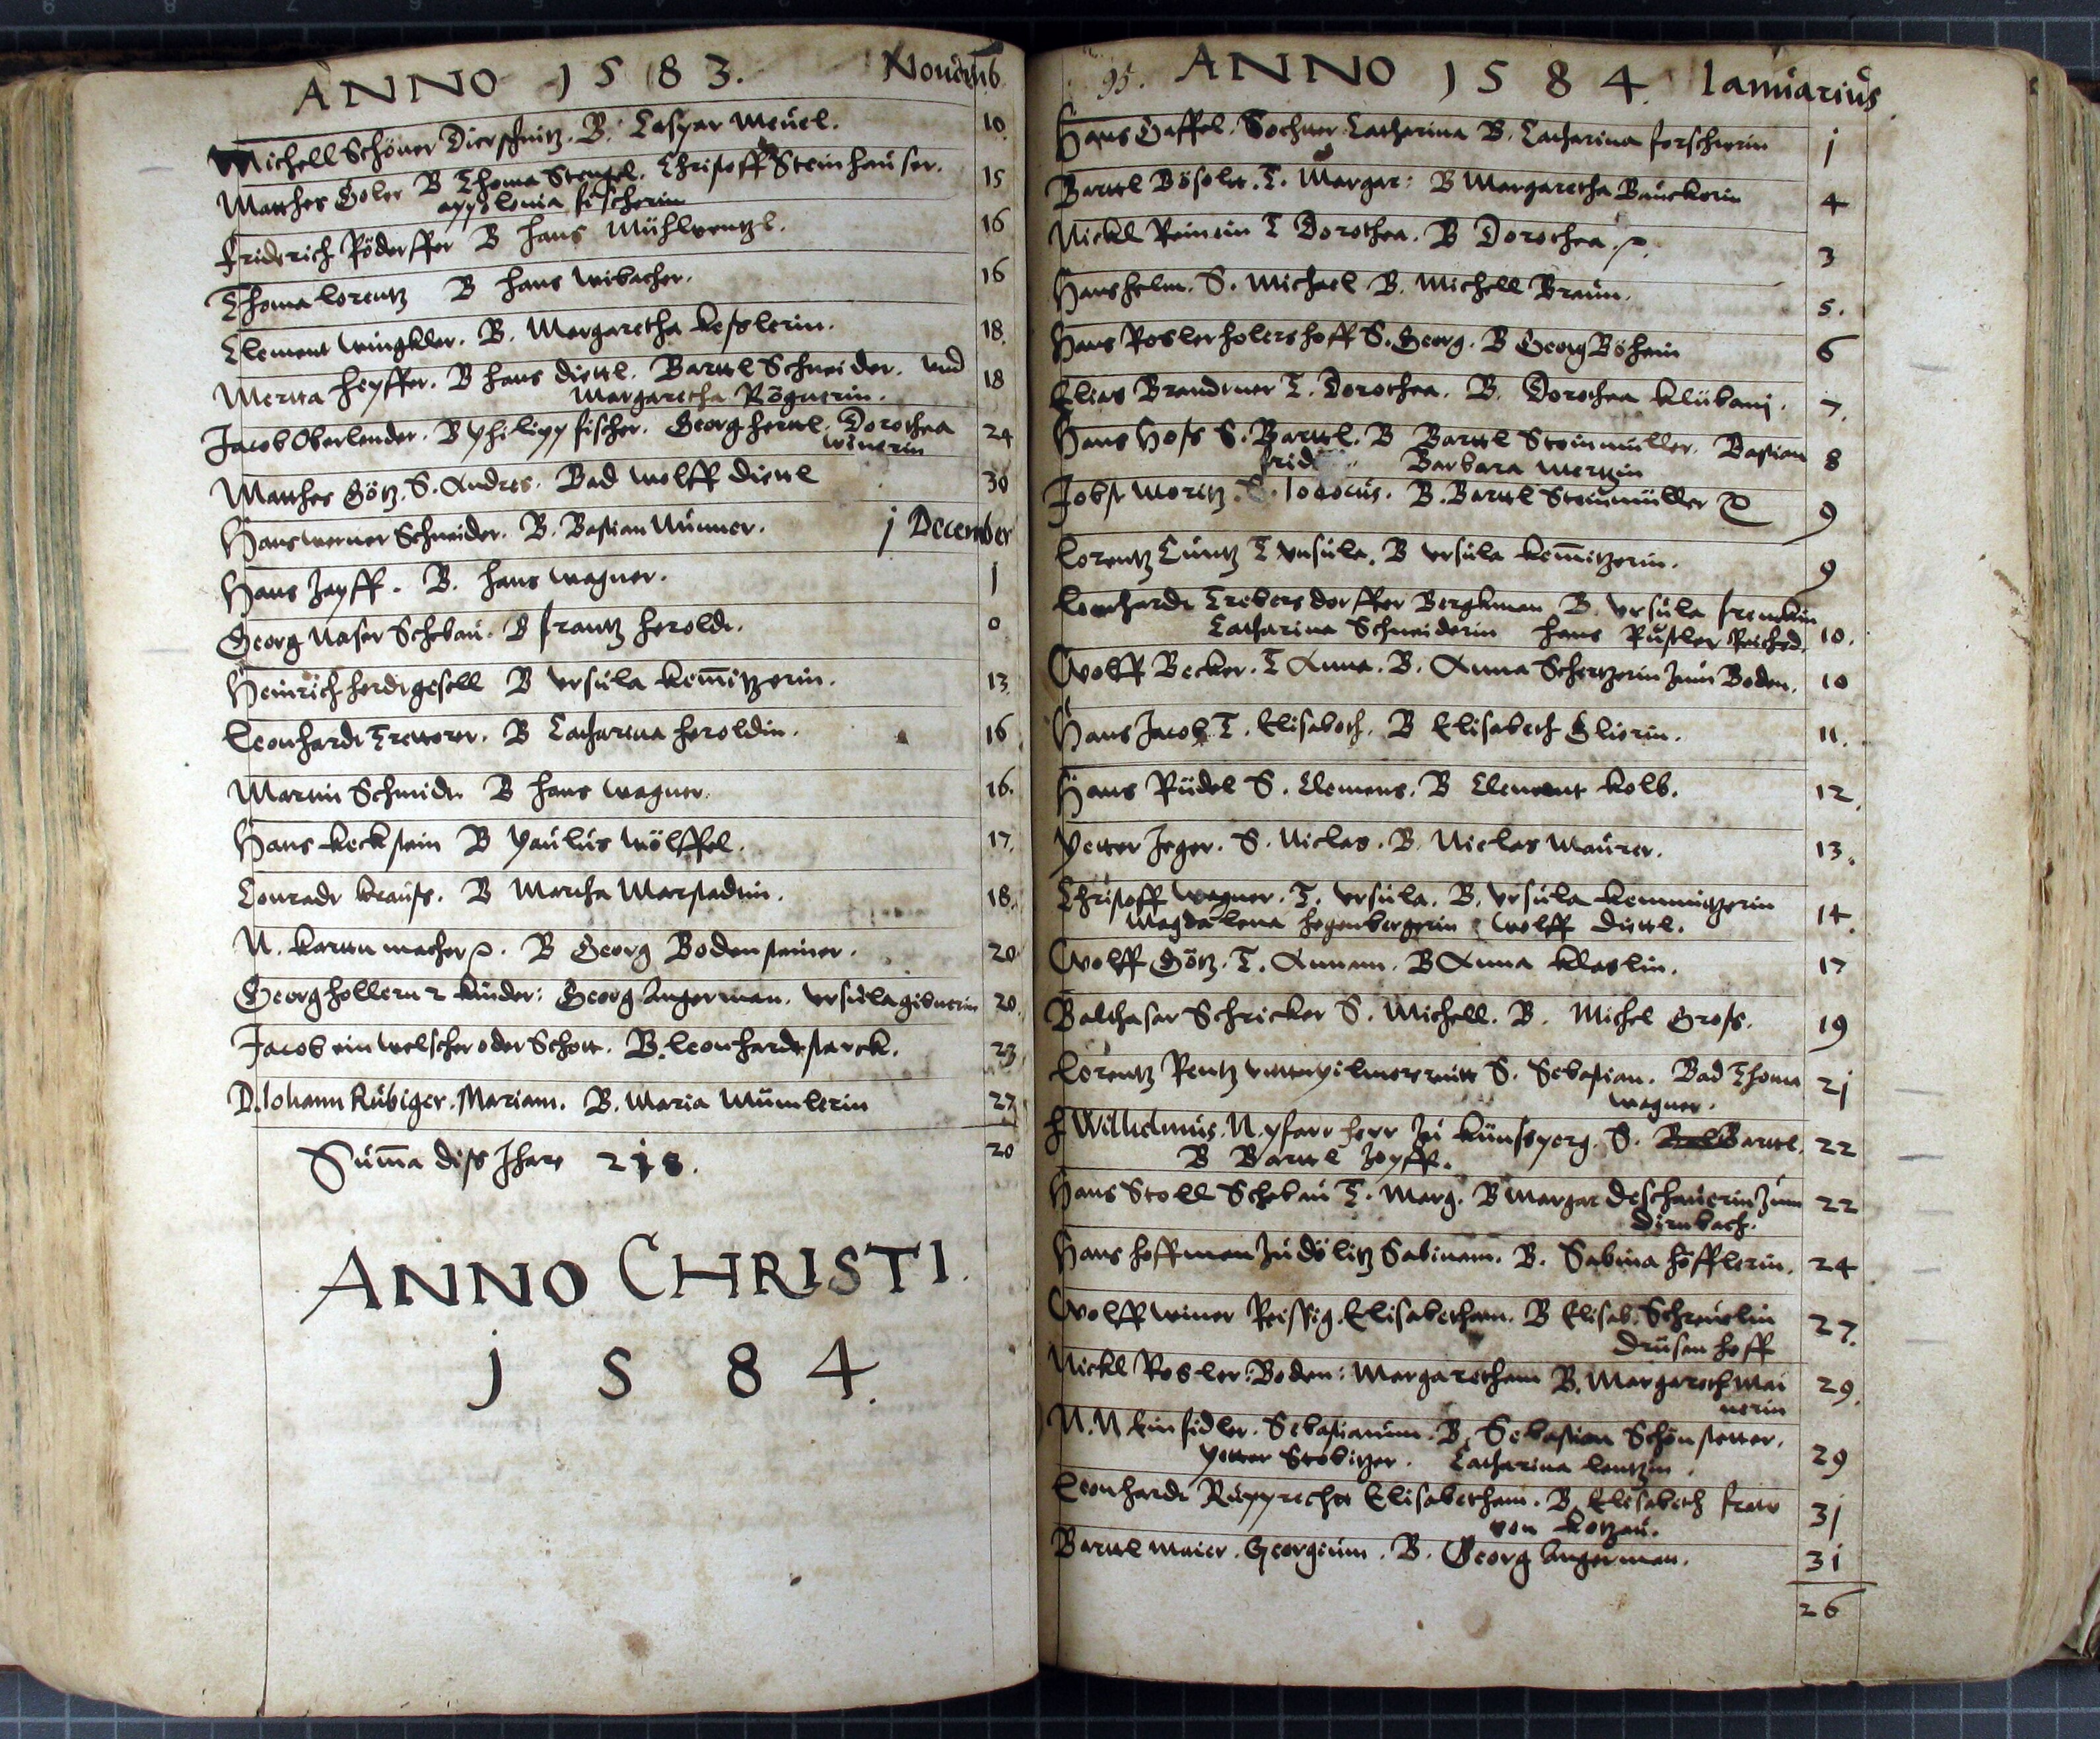 ANNO 1583. Nouemb
Michell Schöner Dierschnitz. B. Caspar Meuel. 10
Matthes Goler B Thoma Stengel. Christoff Steinhauser. 15
appolonia fischerin
friderich Röderffer B hans Mühlwentzl. 16
Thoma lorentz B hans wibacher. 16
Clement wingkler. B. Margaretha kesslerin. 18.
Merta heyffer. B hans diettl. Barttl Schneider. und 18
Margaretha Rögnerin.
Jacob Oberlender. B philipp fischer. Georg herttl. Dorothea 24
winerin
Matthes Götz. S. Andres. Bad wolff diettl 30
Hans werner Schneider. B. Bastian Nunner. j December
Hans Zayff. B. hans wagner. j
Georg Naser Schebau. B frantz heroldt. 0
Heinrich herdtgesell B ursula kemitzerin. 13
Leonhardt Tretterer. B Catharina heroldin. 16
Martin Schmidt. B hans wagner. 16.
Hans keckstein B paulus wölffel. 17.
Conradt krauss. B Martha Marstadtin. 18.
N. karttnmacher. B Georg Bodensteiner. 20
Georg hollern 2 kinder: Georg Angerman. ursula gibnerin 20.
Jacob ein welscher oder Schott. B. leonhardt starck. 23
D. Johann Rübiger. Mariam. B. Maria Mümlerin 27
Suma diss Jhars 218. 20
ANNO CHRISTI.
1584.
95. ANNO 1584. Ianuarius
Hans Gaffel. Sochter Catharina B. Catharina forscherin j
Barttl Bösolt. T. Margar: B Margaretha Bauckerin 4
Nickl Rein T Dorothea. B Dorothea 3
Hans helm. S. Michael B. Michell Braun. 5.
Hans Rosler holershoff S. Georg. B Georg Böhein 6
Elias Brandtner T. Dorothea. B. Dorothea klübani. 7.
Hans Hoss S. Barttl. B Barttl Steinmüller. Bastian 8
frid Barbara Mertzin
Jobst Moritz. S. Iodocus. B. Barttl Steinmüller 9
Lorentz Cuntz T ursula. B ursula kemitzerin. 9
Leonhardt Trebersdorffer Bergkman B. ursula frenckin
Catharina Schneiderin hans Rustler 10.
Wolff Becker. T Anna. B. Anna Schertzerin zum Boden. 10
Hans Jacob T. Elisabeth. B Elisabeth Glierin. 11.
Hans Rüdel S. Clemens. B Clement kolb. 12.
Petter Jeger. S. Niclas. B. Niclas Maurer. 13.
Christoff wagner. T. ursula. B. ursula kemmitzerin 14.
Magdalena hegenbergerin wolff diettl.
Wolff Götz. T. Annam. B Anna klaslin. 17
Balthasar Schricker S. Michell. B. Michel Gross. 19
Lorentz Rentz S. Sebastian. Bad Thoma 21
wagner.
h Wilhelmus N. pfarrherr zu künssperg. S. Barttl. 22
B Barttl Zeyff.
Hans Stoll Schebau T. Marg. B Margar deschauerin zum 22
dirnbach.
Hans hoffman zu dölitz Sabinam. B. Sabina höfflerin. 24
Wolff winer Reissig. Elisabetham. B Elisab. Schreuelin 27.
drüsenhoff
Nickl Rosler: Boden: Margaretham B. Margareth Mai 29.
nerin
N. N. Einsidler. Sebastianum. B. Sebastian Schönstetter.
Petter Stobitzer. Catharina lentzin. 29
Leonhardt Rupprecht Elisabetham. B. Elisabeth fraw 31
von kotzau.
Barttl Maier. Georgium. B. Georg Angerman. 31
26